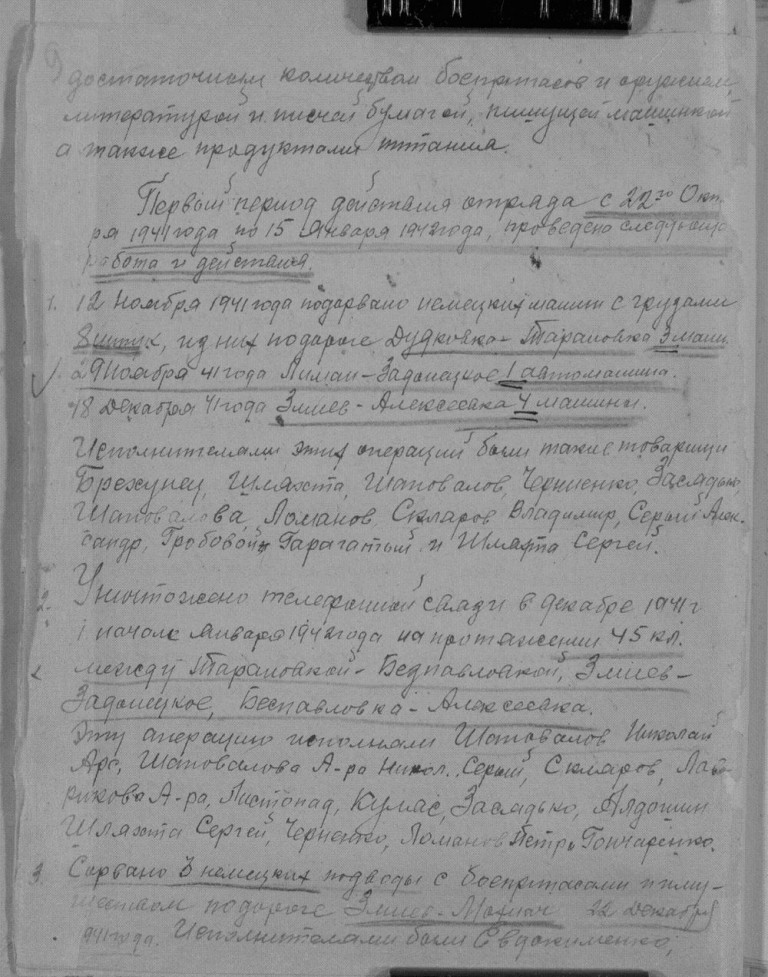 9
достаточным количеством боеприпасов и оружием,
литературой и писчей бумагой, пишущей машинкой
а также продуктами питания.
Первый период действия отряда с 22го Октя
ря 1941 года по 15 Января 1942 года, проведено следующая
работа и действия.
1. 12 Ноября 1941 года подорвано немецких машин с грузами
8 штук, из них подороге Дудковка - Тарановка 3 маш.
29 ноября 41 года Лиман - Задонецкое 1 автомашина.
18 Декабря 41 года Змиев - Алексеевка 4 машини.
Исполнителями этих операций были такие товарищи
Брехунец, Шляхта, Шаповалов, Черниенко, Засядько,
Шаповалова, Ломанов, Скляров Владимир, Серый Алек-
сандр, Гробовой, Гарагатый и Шляхта Сергей.
2. Уничтожено телефонной связи в декабре 1941 г
и начале января 1942 года на протяжении 45 кл.
между Тарановкой - Беспавловкой, Змиев -
Задонецкое, Беспавловка - Алексеевка.
Эту операцию исполняли Шаповалов Николай
Шаповалова А-ра Никол. Серый, Скляров,
А-ра, Листопад, Кулас, Засядько, Алдошин
Шляхта Сергей, Черненко, Ломанов Петр, Гончаренко.
3. Сорвано 3 немецких подводы с боеприпасами и иму-
ществом подороге Змиев - Мохнач 22 декабря
1941 года. Исполнителями были Евдокименко,